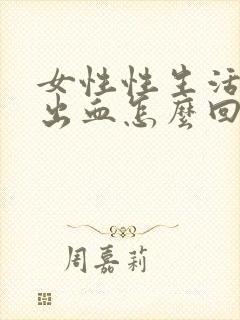 女性性生活
出血怎麼回
周嘉莉